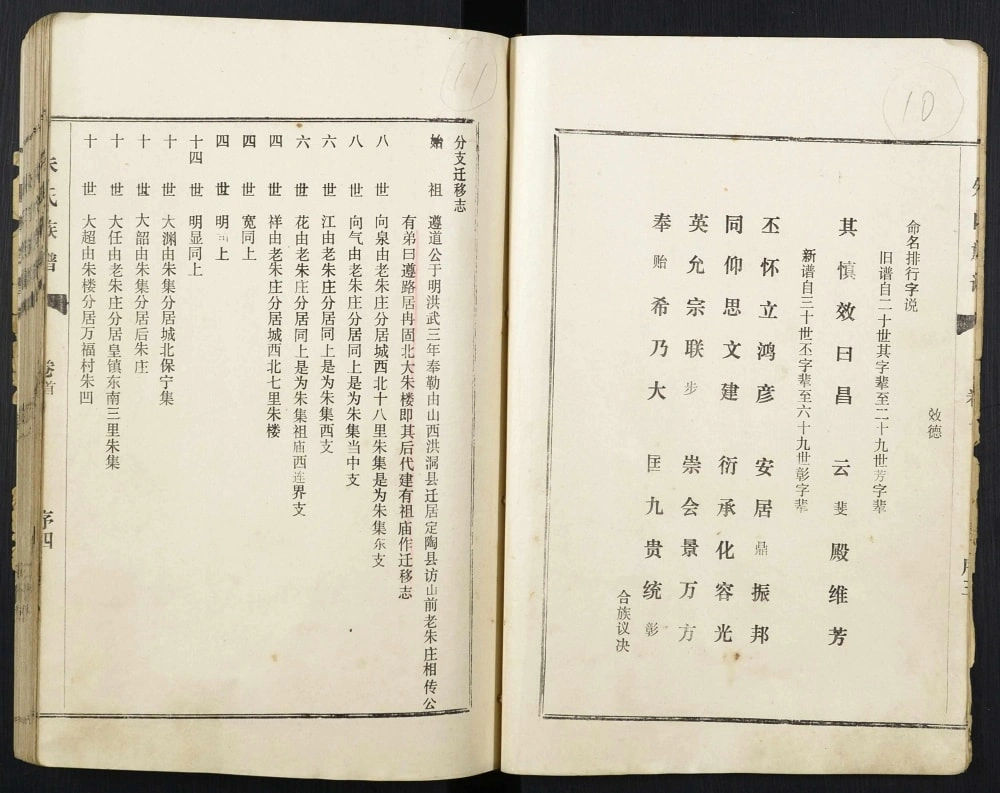 10
效德
命名排行字说
旧谱自二十世其字辈至二十九世芳字辈
其慎效曰昌 云斐殿维芳
新谱自三十世丕字辈至六十九世彰字辈
丕怀立鸿彦 安居鼎振邦
同仰思文建 衍承化容光
英允宗联步 崇会景万方
奉贻希乃大 匡九贵统彰
合族议决
11
分支迁移志
始祖 遵道公于明洪武三年奉勒由山西洪洞县迁居定陶县访山前老朱庄相传公
有弟曰遵路居冉固北大朱楼即其后代建有祖庙作迁移志
八世 向泉由老朱庄分居城西北十八里朱集是为朱集东支
八世 向气由老朱庄分居同上是为朱集当中支
六世 江由老朱庄分居同上是为朱集西支
六世 花由老朱庄分居同上是为朱集祖庙西连界支
四世 祥由老朱庄分居城西北七里朱楼
四世 宽同上
四世 明同上
十四世 明显同上
十世 大渊由朱集分居城北保宁集
十世 大韶由朱集分居后朱庄
十世 大任由老朱庄分居皇镇东南三里朱集
十世 大超由朱楼分居万福村朱凹
朱氏族谱 卷首 序四